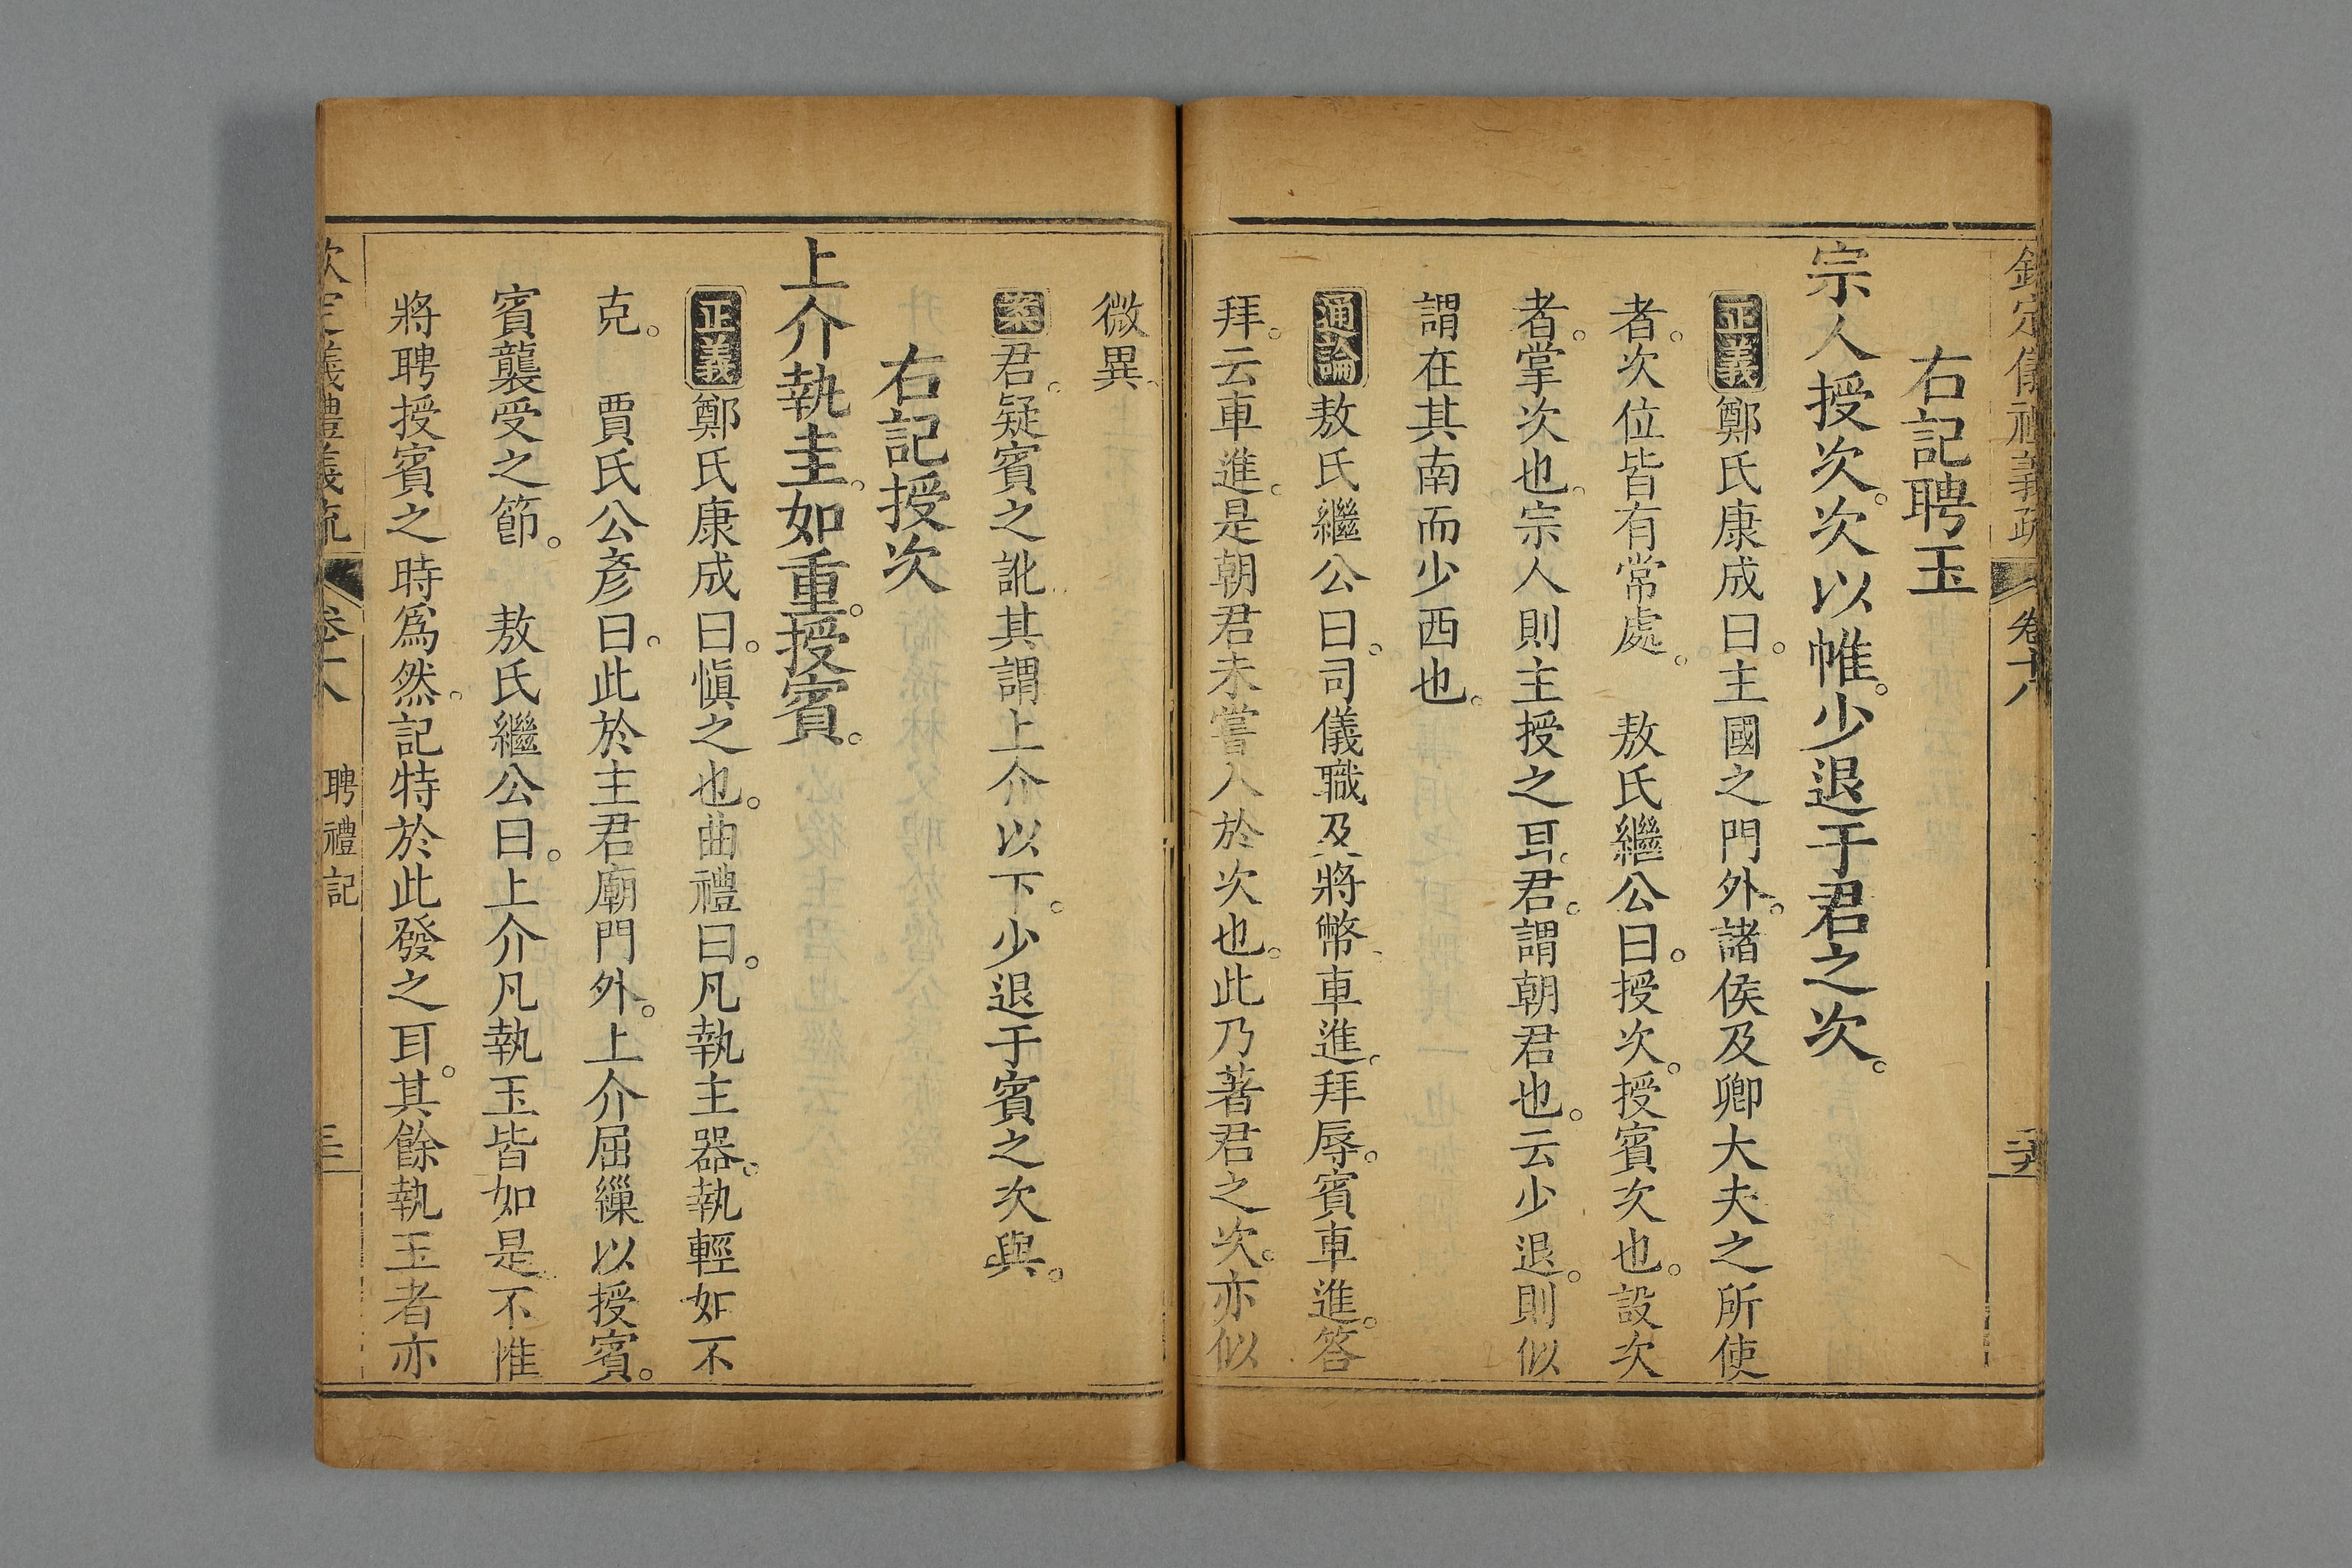 欽定儀禮義疏 卷十八
右記聘玉
宗人授次。次以帷。少退于君之次。
正義鄭氏康成曰。主國之門外。諸侯及卿大夫之所使
者。次位皆有常處。 敖氏繼公曰。授次。授賓次也。設次
者。掌次也。宗人則主授之耳。君。謂朝君也。云少退。則似
謂在其南而少西也。
通論敖氏繼公曰。司儀職及將幣。車進。拜辱。賓車進。答
拜。云車進。是朝君未嘗入於次也。此乃著君之次。亦似
微異。
案君。疑賓之訛。其謂上介以下。少退于賓之次與。
右記授次
上介執圭。如重。授賓。
正義鄭氏康成曰。愼之也。曲禮曰。凡執主器。執輕如不
克。 賈氏公彥曰。此於主君廟門外。上介屈繅以授賓。
賓襲受之節。 敖氏繼公曰。上介凡執玉皆如是。不惟
將聘授賓之時爲然。記特於此發之耳。其餘執玉者亦
欽定儀禮義疏 卷十八 聘禮記